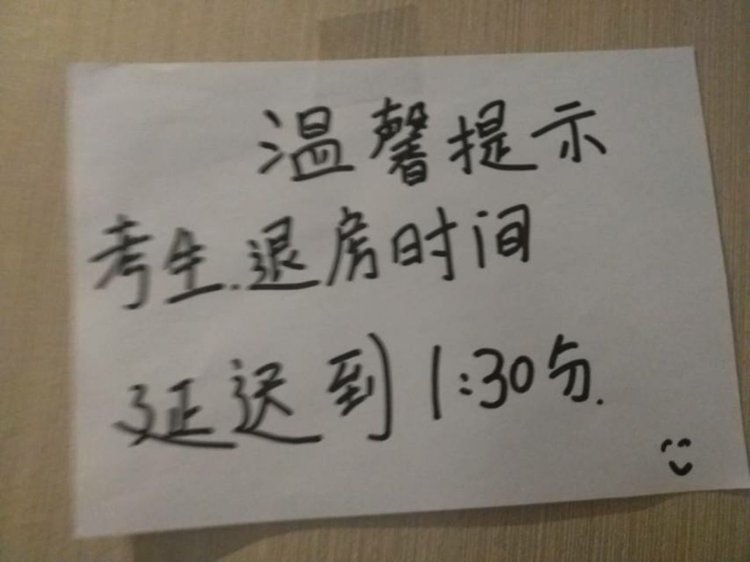 温馨提示
考生.退房时间
延迟到1:30分.